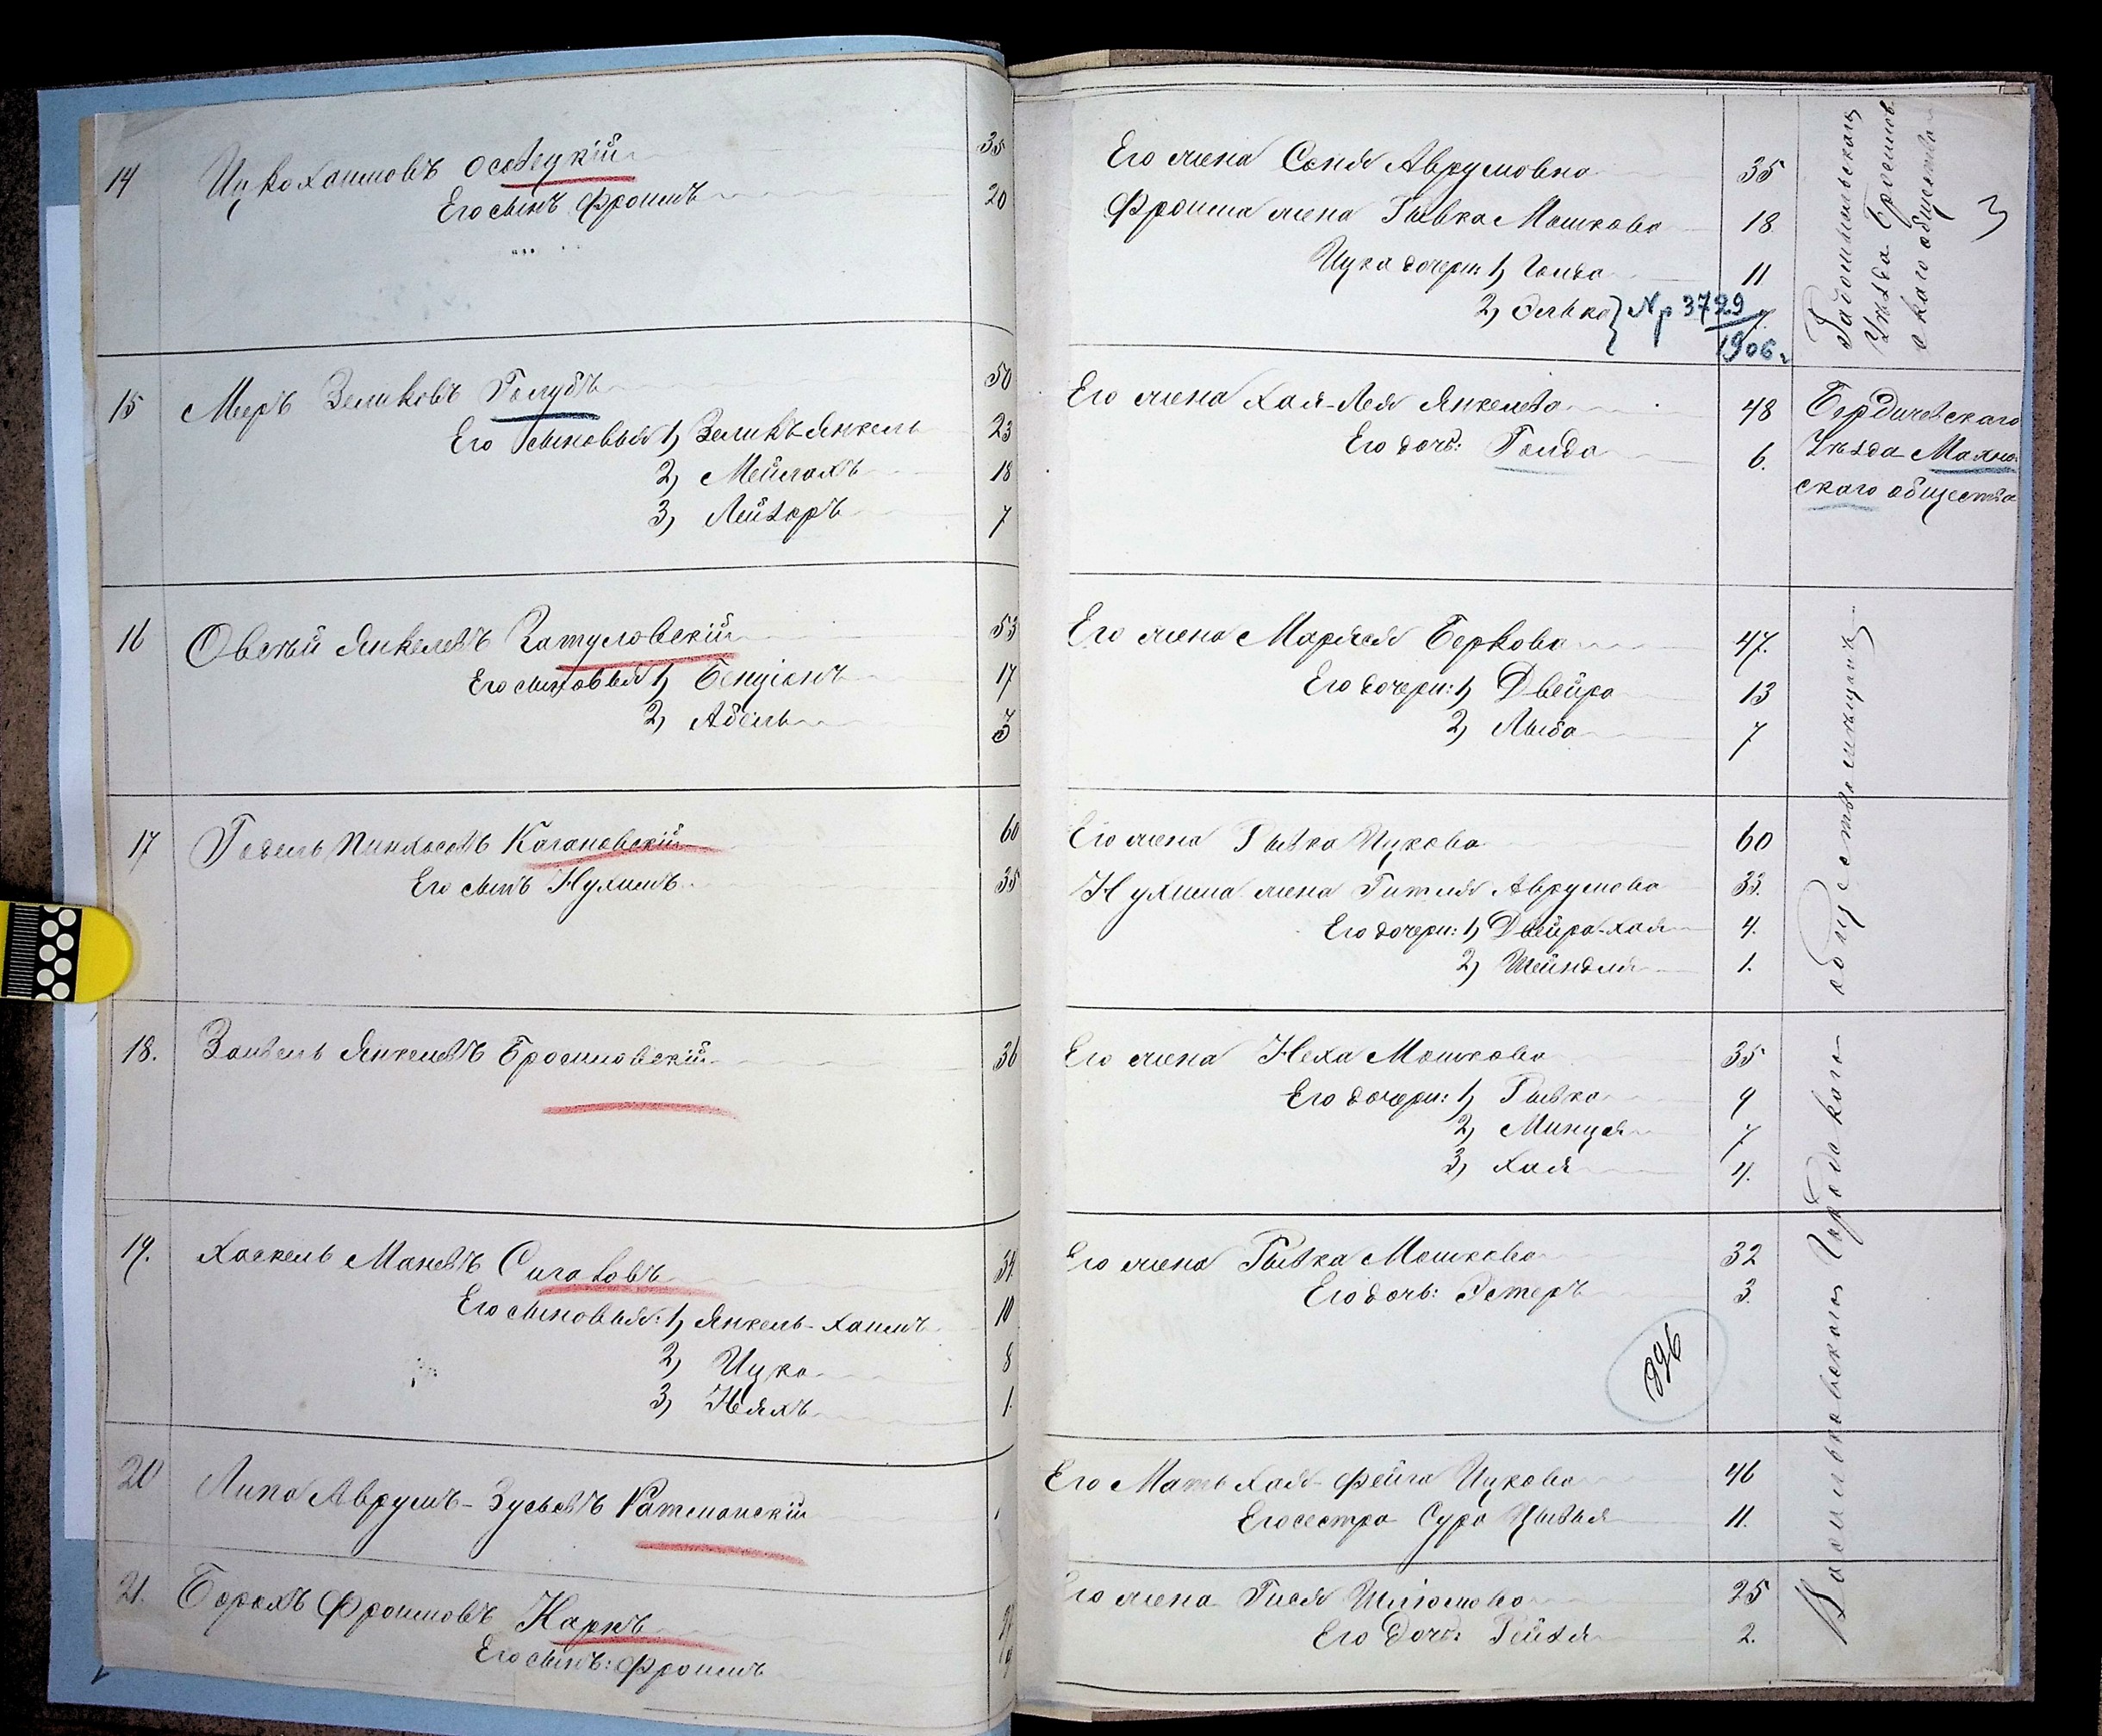 14 Ицко Хаимовъ Осовецкій 35
Его сынъ Фроимъ 20
15 Мееръ Зеликовъ Голубъ 50
Его сыновья 1, Зеликъ-Янкель 23
2, Мейлахъ 18
3, Лейзоръ 7
16 Овсей Янкелевъ Затуловскій 53
Его сыновья 1, Бенціонъ 17
2, Абель 3
17 Годель Пинхасовъ Кагановскій 60
Его сынъ Нухимъ 35
18. Занвель Янкелевъ Броиловскій 36
19. Хаскель Маневъ Сигаловъ 34
Его сыновья: 1, Янкель-Хаимъ 10
2, Ицко 8
3, Нояхъ 1
20 Липа Аврумъ-Зусьевъ Ратманскій
21. Борохъ Фроимовъ Каркъ
Его сынъ: Фроимъ
3
Его жена Соня Аврумовна 35
Фроима жена Рывка Мошкова 18
Ицка дочери: 1, Голда 11
2, Элька 7.
Nр 3729
1906 г.
Радомысльскаго
Уѣзда
скаго общества
Его жена Хая-Лея Янкелева 48
Его дочь: Голда 6.
Бердичевскаго
Уѣзда Махно-
скаго общества
Его жена Маріся Беркова 47.
Его дочери: 1, Двейра 13
2, Лыба 7
Его жена Рывка Ицкова 60
Нухима жена Гитля Аврумова 33.
Его дочери: 1, Двейра-Хая 4.
2, Шейндля 1.
Его жена Неха Мошкова 35
Его дочери: 1, Рывка 9
2, Минця 7
3, Хая 4.
Его жена Рывка Мошкова 32
Его дочь: Эстеръ 3.
Его Мать Хая-Фейга Ицкова 46
Его сестра Сура Цывья 11.
Его жена Гися Шліомова 25
Его дочь: Рейзя 2.
Васильковскаго Городскаго общества мѣщанъ